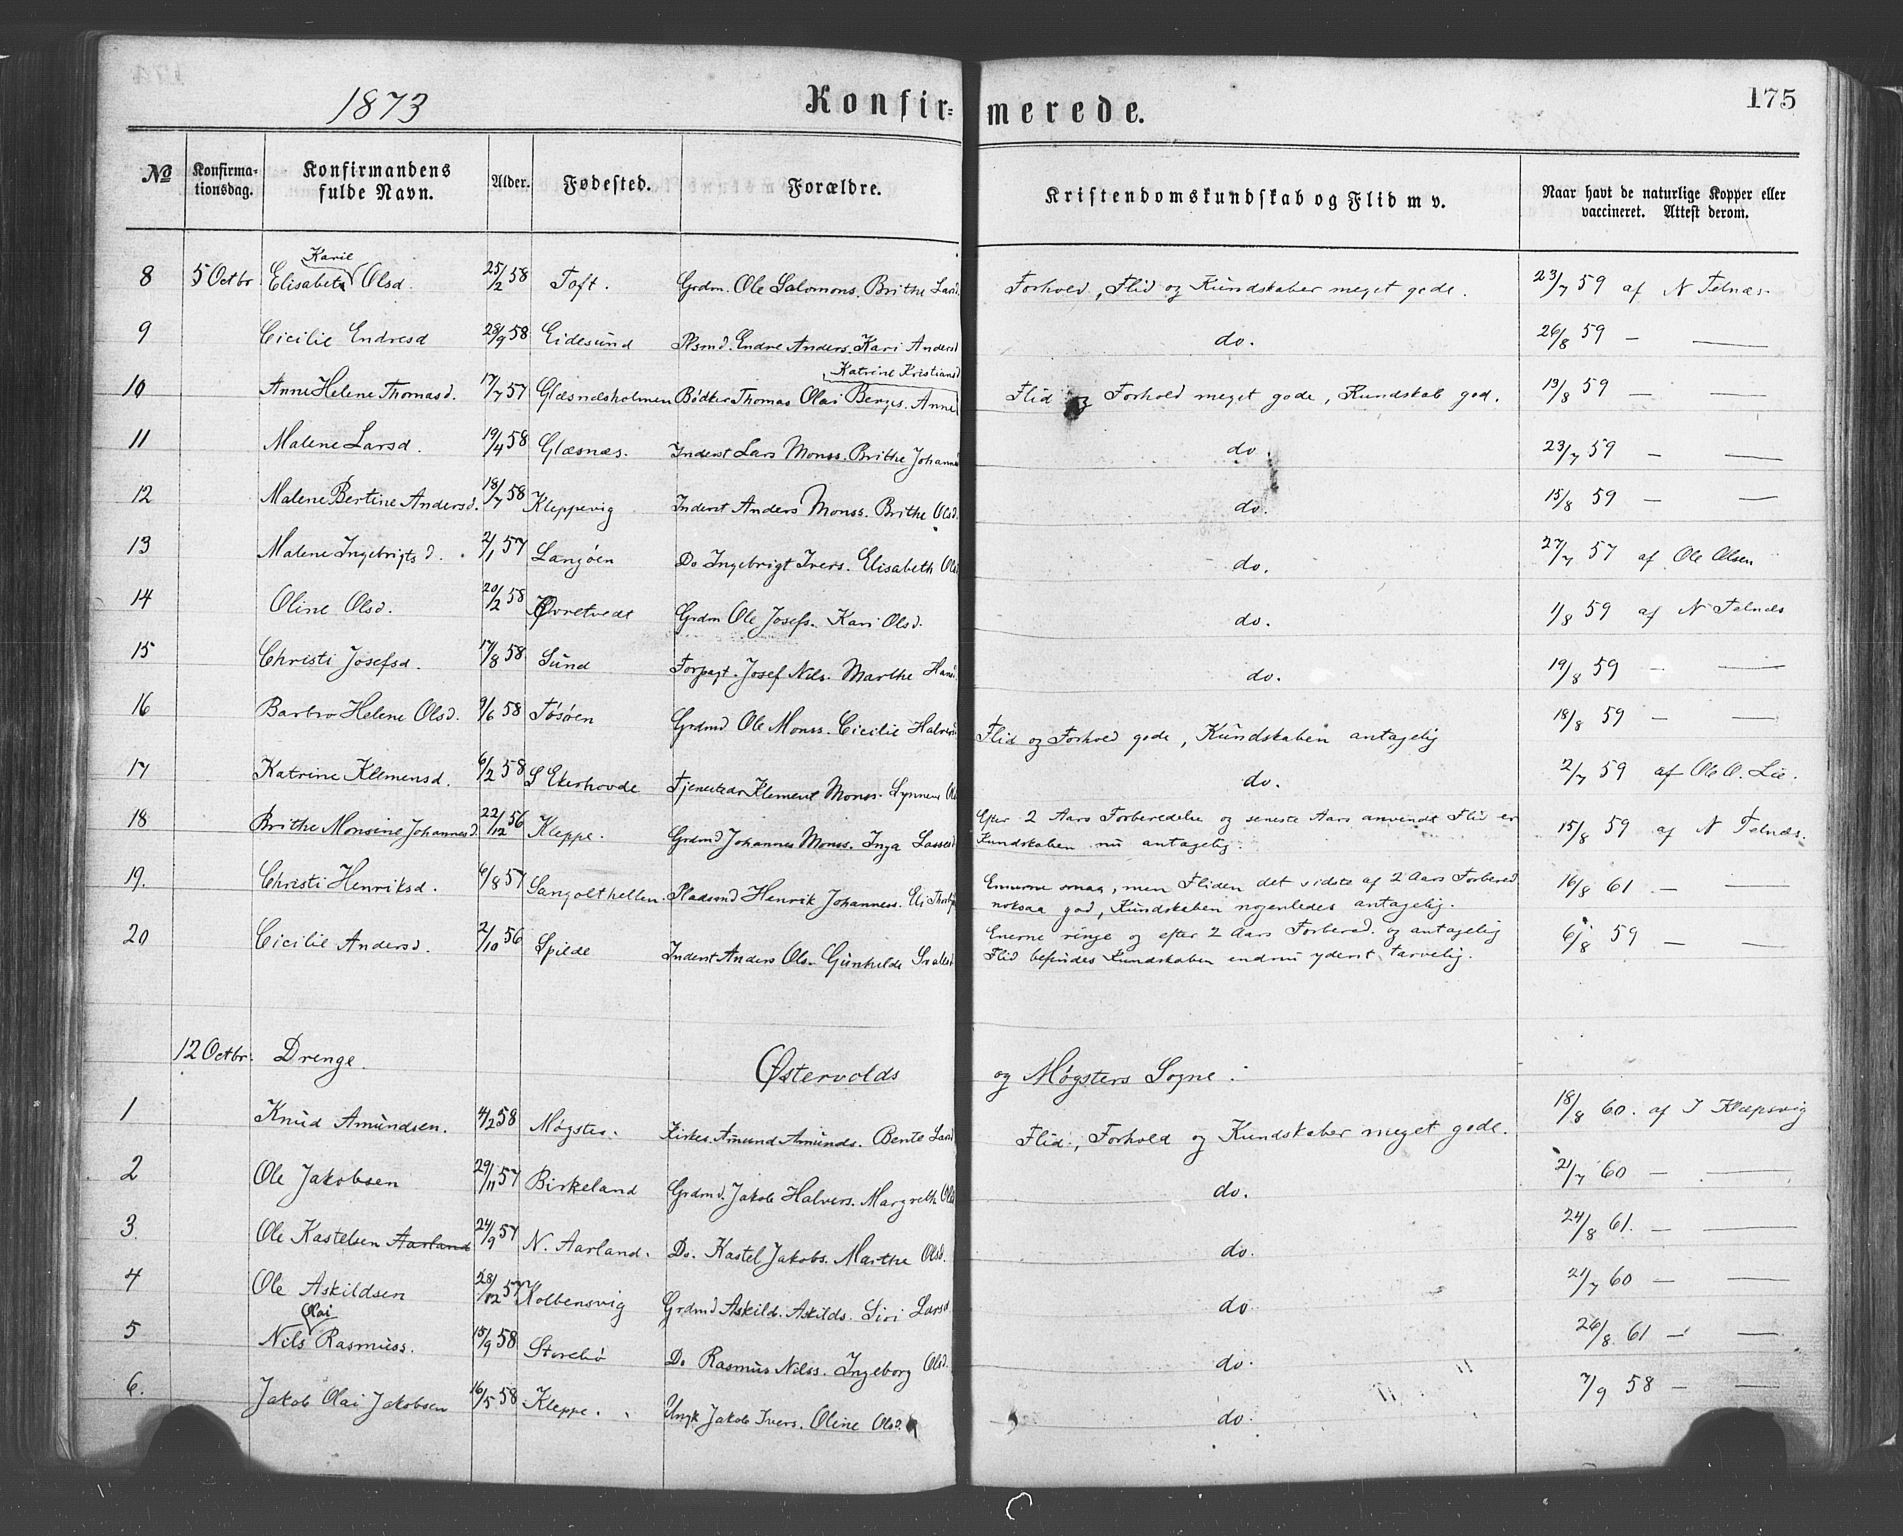 1873 Konfir= merede. 175
№ Konfirma-tionsdag. Konfirmandens fulde Navn. Alder. Fødested. Forældre. Kristendomskundskab og Flid m v. Naar havt de naturlige Kopper eller vaccineret. Attest derom.
Karie
8 5 Octbr Elisabeth Olsd. 25/2 58 Toft. Grdm. Ole Salomons. Brithe Larsd. Forhold, Flid og Kundskaber meget gode. 23/7 59 af N Telnæs
9 Cicilie Endresd 28/9 58 Eidesund Plsmd. Endre Anders. Kari Andersd do. 26/8 59 — —
Katrine Kristiansd
10 Anne Helene Thomasd. 17/7 57 Glæsnæsholmen Bødker Thomas Olai Berges. Anne Flid og Forhold meget gode, Kundskab god. 13/8 59 — —
11 Malene Larsd. 19/4 58 Glæsnæs. Inderst Lars Monss. Brithe Johann do. 23/7 59 — —
12 Malene Bertine Andersd. 18/7 58 Kleppevig Inderst Anders Monss. Brithe Olsd. do. 15/8 59 — —
13 Malene Ingebrigtsd. 2/1 57 Langøen Do Ingebrigt Ivers. Elisabeth Ols do. 27/7 57 af Ole Olsen
14 Oline Olsd. 20/2 58 Øvretvedt Grdm Ole Josefs. Kari Olsd. do. 1/8 59 af N Telnæs
15 Christi Josefsd. 17/8 58 Sund Forpagt. Josef Nils. Marthe Hans do. 19/8 59 — —
16 Barbro Helene Olsd. 9/6 58 Tøsøen Grdmd Ole Monss. Cicilie Halvors Flid og Forhold gode, Kundskaben antagelig 18/8 59 — —
17 Katrine Klemensd. 6/2 58 S Ekerhovde Tjenestekar Klement Monss. Synneve Ols do. 2/7 59 af Ole O. Lie.
18 Brithe Monsine Johannesd. 22/12 56 Kleppe. Grdmd Johannes Monss. Inga Lassesd Efter 2 Aars Forberedelse og seneste Aars anvendt Flid er 15/8 59 af N Telnæs.
Kundskaben nu antagelig.
19. Christi Henriksd. 6/8 57 Sangolthellen. Pladsmd Henrik Johanness. Eli Evnerne smaa, men Fliden det sidste af 2 Aars Forbered 16/8 61 — —
noksaa god, Kundskaben nogenledes antagelig.
20 Cicilie Andersd. 2/10 56 Spilde Inderst Anders Ols. Gunhilde Evnerne ringe og efter 2 Aars Forbered. og antagelig 6/8 59 — —
Flid befindes Kundskaben endnu yderst tarvelig.
12 Octbr. Drenge. Østervolds og Møgsters Sogne.
1 Knud Amundsen. 4/2 58 Møgster. Kirkes. Amund Amunds. Bente Larsd Flid, Forhold og Kundskaber meget gode. 18/8 60. af I Klæpsvig
2 Ole Jakobsen 29/11 57 Birkeland Grdmd. Jakob Halvers. Margrethe Ols do. 21/7 60 — —
3. Ole Kastelsen Aarland 24/9 57 N. Aarland. Do. Kastel Jakobs. Marthe Olsd. do. 24/8 61. — —
4 Ole Askildsen 28/12 57 Kolbensvig Grdmd Askild. Askilds. Siri Larsd do 21/7 60 — —
Olai
5 Nils Rasmuss. 15/9 58 Storebø Do Rasmus Nilss. Ingeborg Olsd. do. 26/8 61 — —
6. Jakob Olai Jakobsen 16/5 58 Kleppe. Ungk Jakob Ivers. Oline Olsd. do. 7/9 58 — —